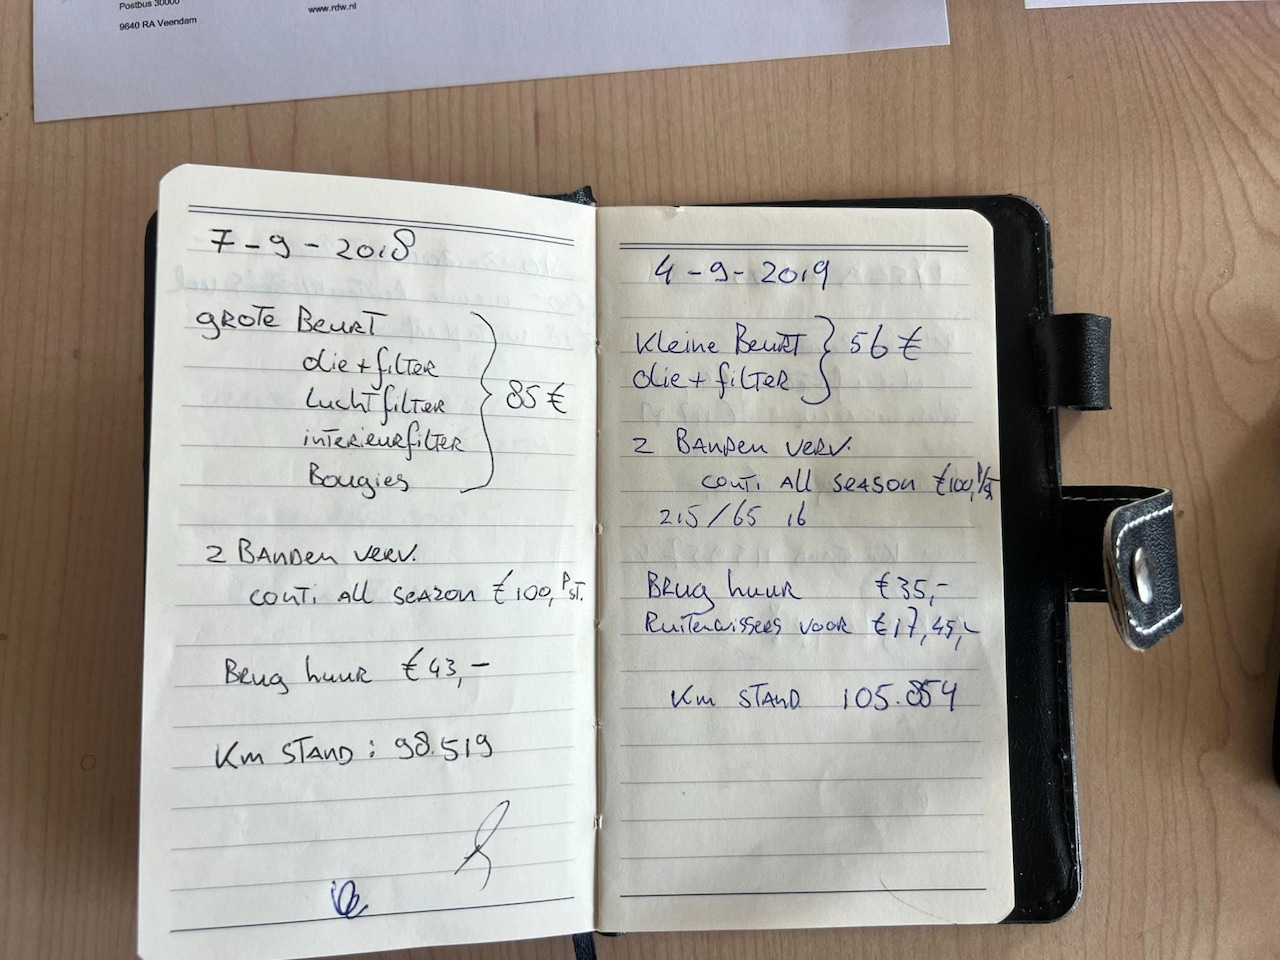 Postbus 30000
www.rdw.nl
9640 RA Veendam
7-9-2018
GROTE BEURT
olie + filter
Luchtfilter
interieurfilter
Bougies
85 €
2 Banden verv.
conti All season € 100,- P st.
Brug huur € 43,-
Km STAND : 98.519
4-9-2019
Kleine Beurt
olie + filter
56 €
2 Banden verv.
conti All season € 100,- P/st
215/65 16
Brug huur € 35,-
Ruitenwissers voor € 17,45,-
Km STAND 105.854